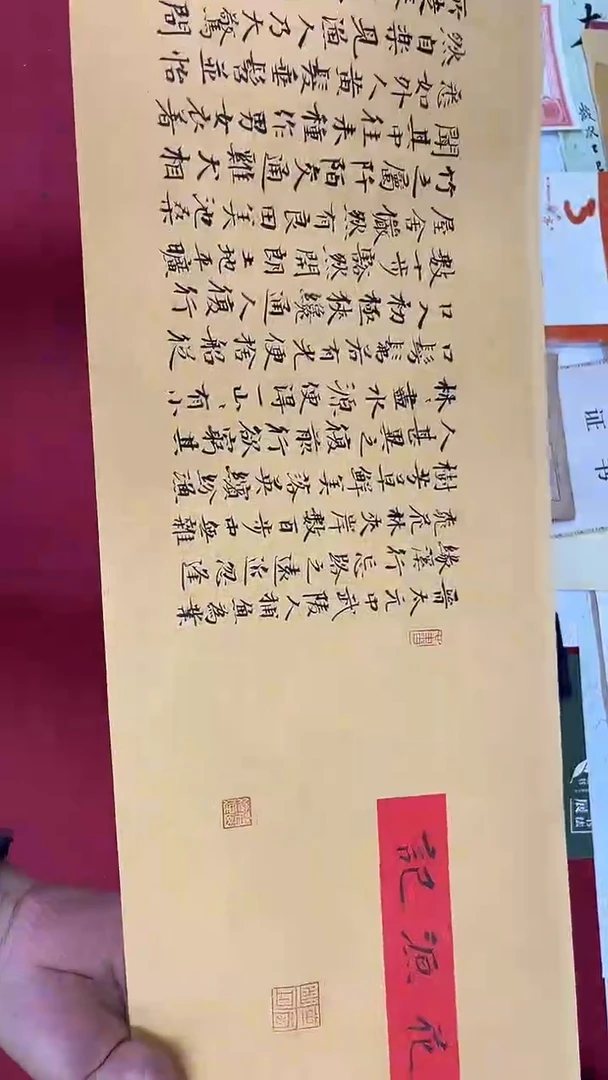 花源記
晉太元中武陵人捕魚為業
緣溪行忘路之遠近忽逢
桃花林夾岸數百步中無雜
樹芳草鮮美落英繽紛漁
人甚異之復前行欲窮其
林、盡水源便得一山、有小
口髣髴若有光便捨船從
口入初極狹纔通人復行
數十步豁然開朗土地平曠
屋舍儼然有良田美池桑
竹之屬阡陌交通雞犬相
聞其中往來種作男女衣著
悉如外人黃髮垂髫並怡
然自樂見漁人乃大驚問
证书
3